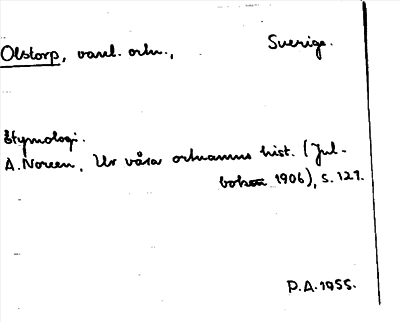 Olstorp, vanl. ortn., Sverige.
Etymologi.
A. Noreen, Ur våra ortnamns hist. (Jul-
boken 1906), s. 127.
P.A. 1955.